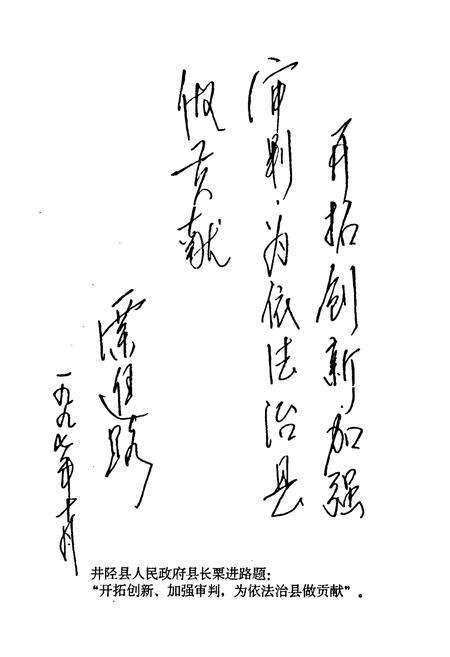 开拓创新加强
审判·为依法治县
做贡献
栗进路
一九九八年十月
井陉县人民政府县长栗进路题：
“开拓创新、加强审判，为依法治县做贡献”。